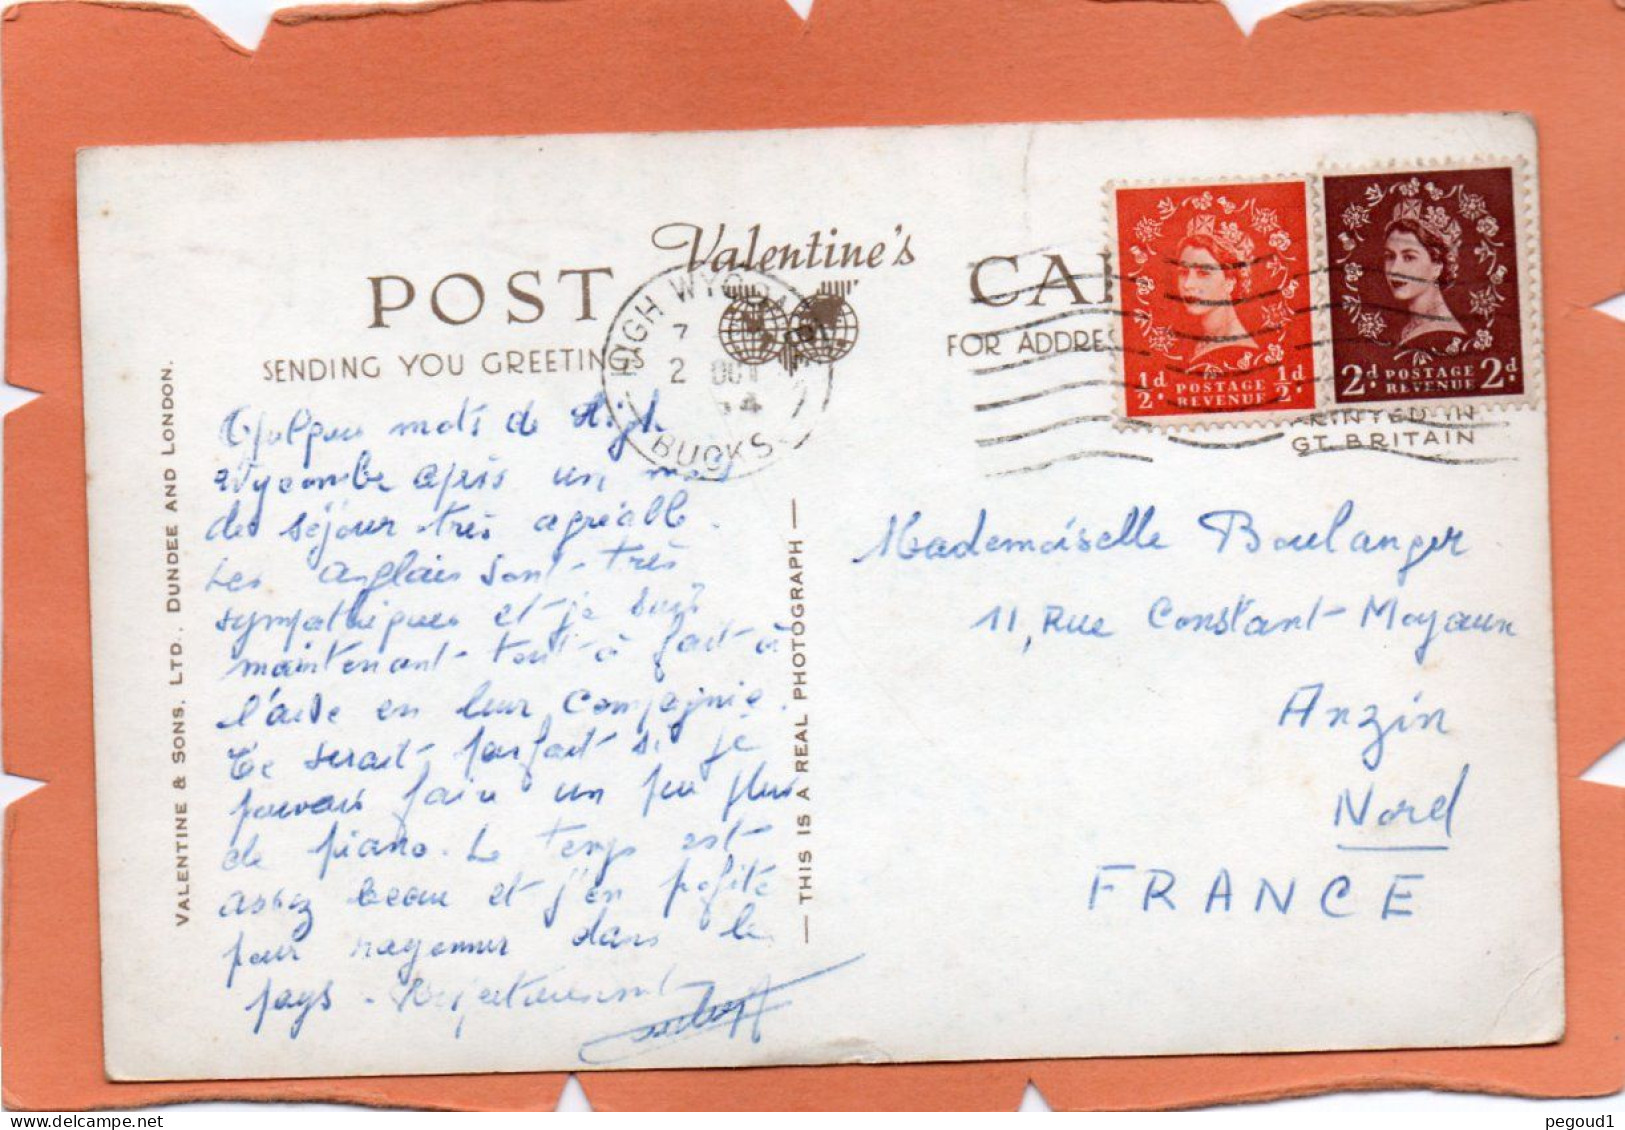 Valentine's
POST CAR
SENDING YOU GREETINGS
FOR ADDRES
HIGH WYCOMBE
7
2 OCT
54
BUCKS
½d POSTAGE REVENUE ½d
2d POSTAGE REVENUE 2d
PRINTED IN
GT. BRITAIN
VALENTINE & SONS, LTD., DUNDEE AND LONDON.
Quelques mots de High
Wycombe après un mois
de séjour très agréable.
Les anglais sont très
sympathiques et je suis
maintenant tout à fait à
l'aise en leur compagnie.
Ce serait parfait si je
pouvais faire un peu plus
de piano. Le temps est
assez beau et j'en profite
pour rayonner dans le
pays. Respectueusement
— THIS IS A REAL PHOTOGRAPH —
Mademoiselle Boulanger
11, Rue Constant Moyaux
Anzin
Nord
FRANCE
pegoud1